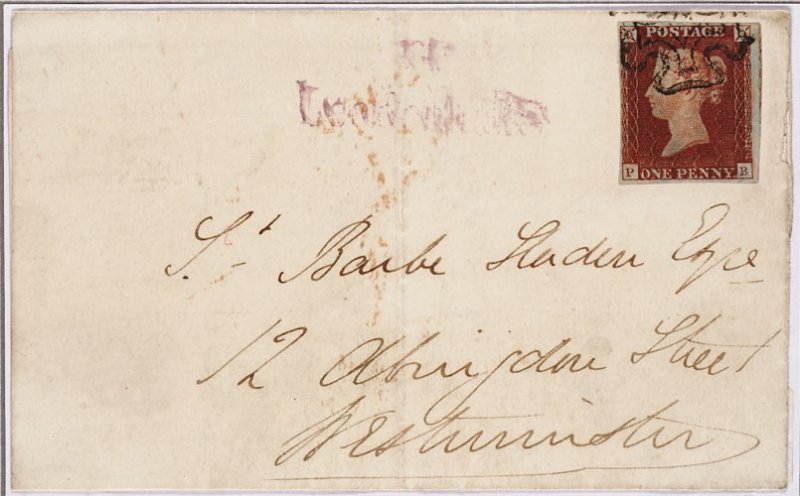 POSTAGE
ONE PENNY
P B
St Barbe Sladen Esqre
12 Abingdon Street
Westminster